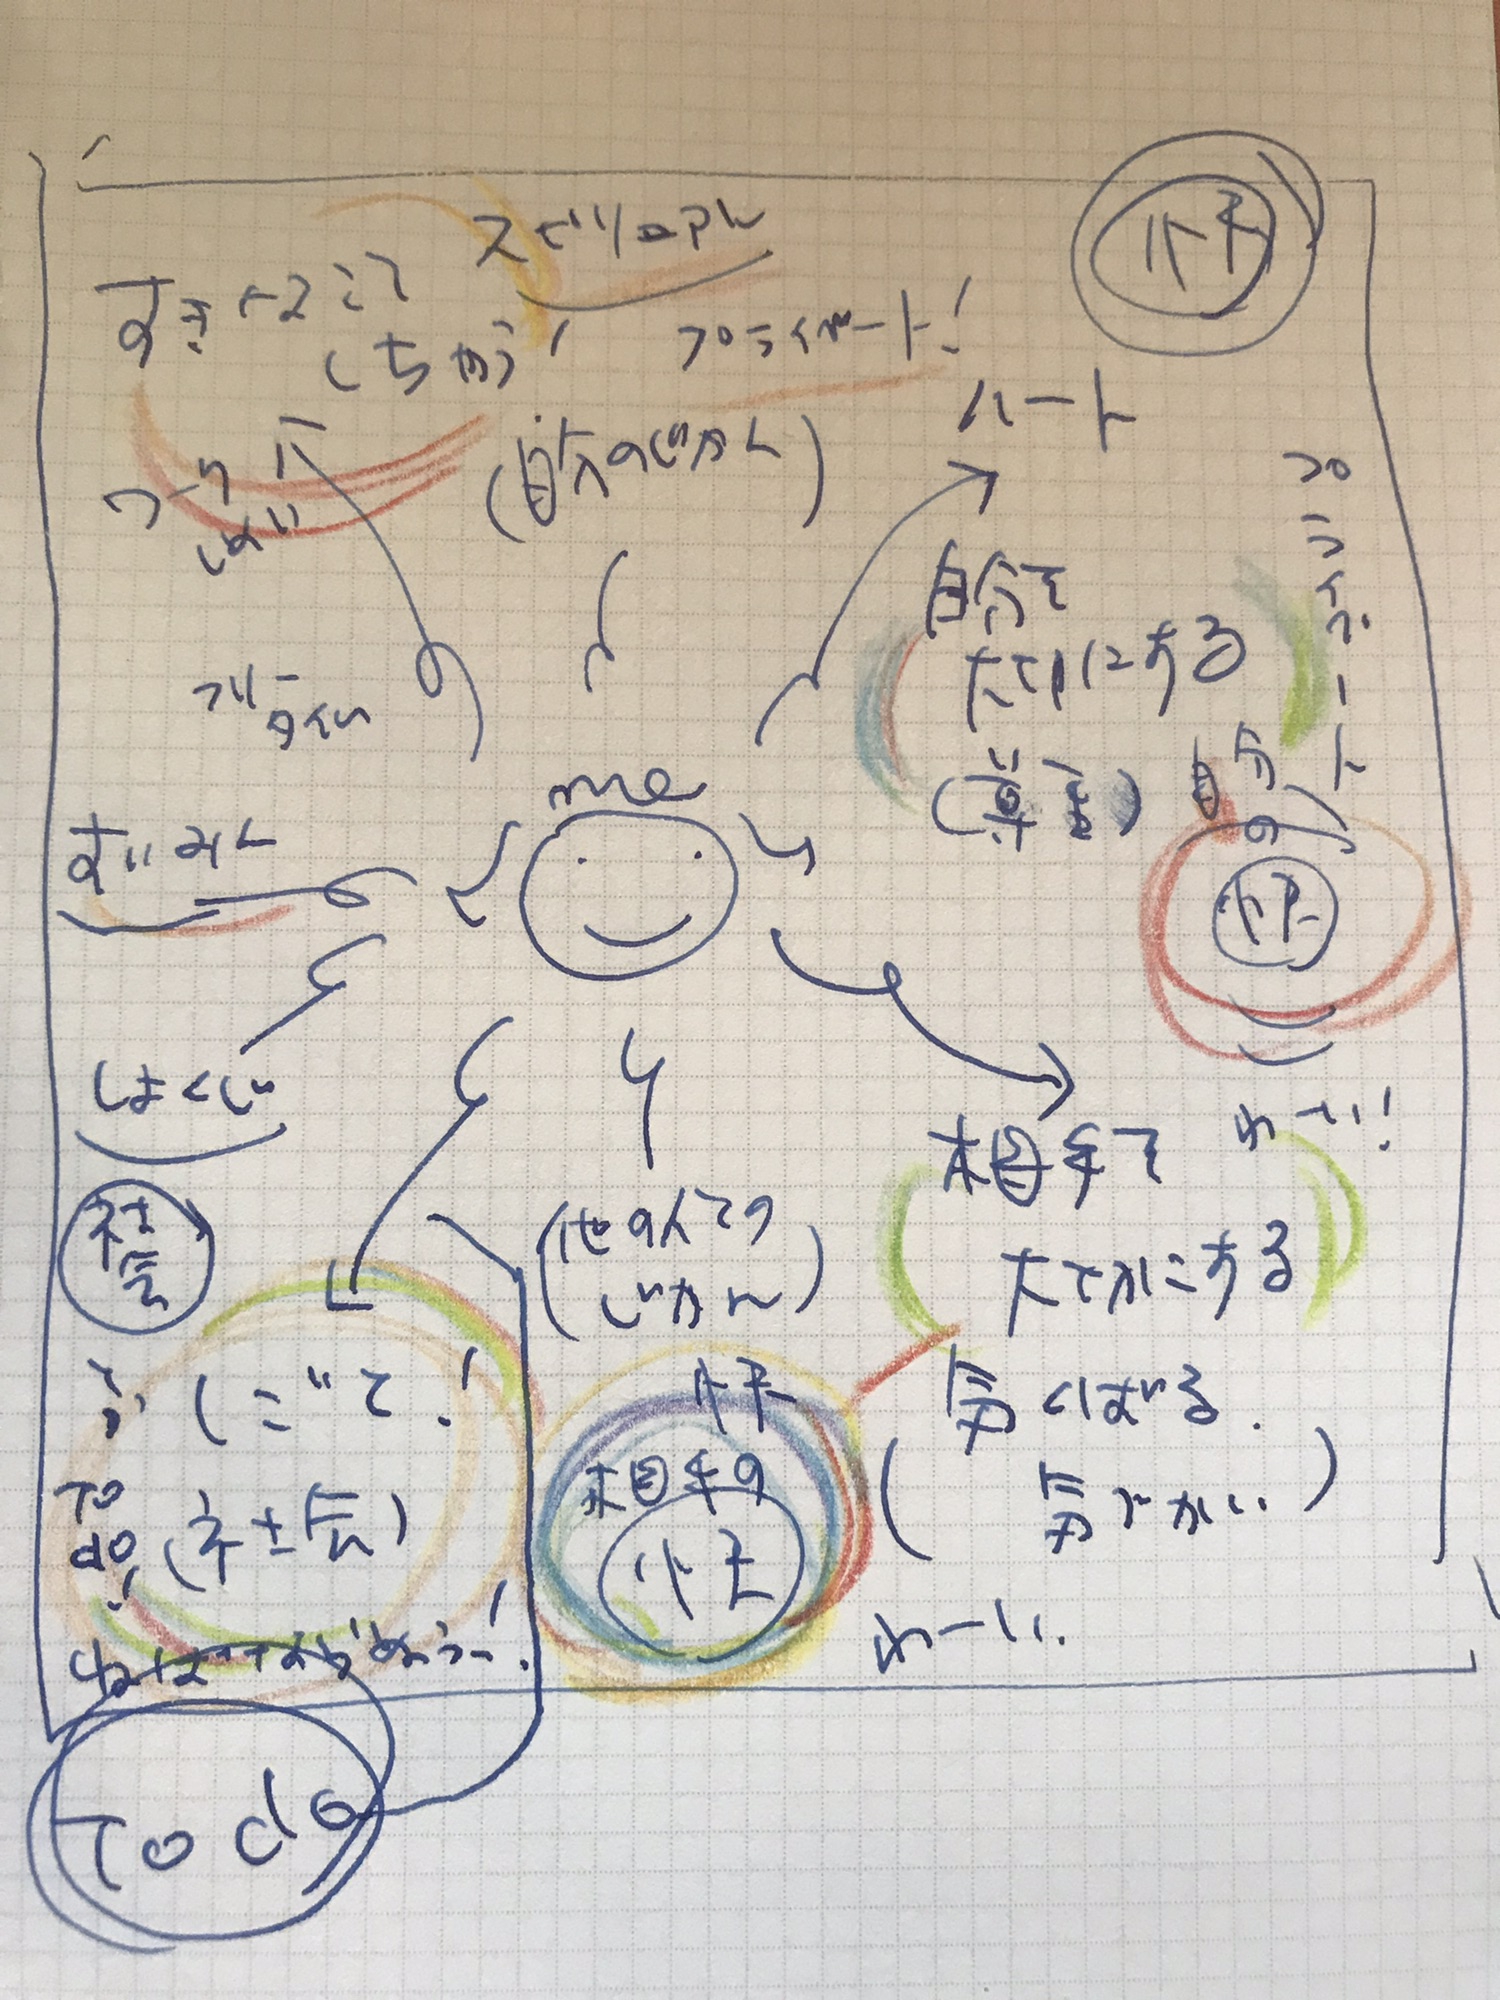 スピリュアル
快
すきなこと
しちがう!
プライベート!
ハート
(自分のじかん)
ワーク
プライベート
自分を
大切にする
フリー
タイム
me
自分
の
快
すいみん
しょくじ
相手を
わーい!
大切にする
社会
(他の人との
じかん)
快
しごと!
気くばる.
相手の
快
To
do!
(社会)
(気づかい.)
わーい.
To do